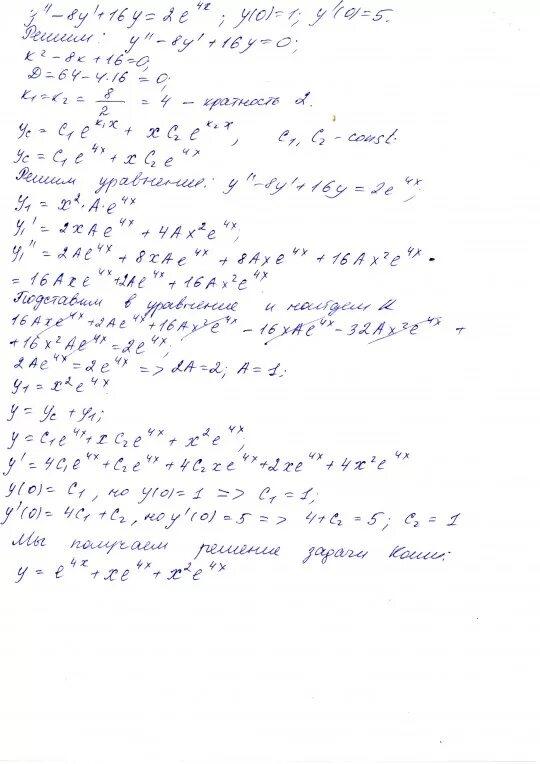 y'' - 8y' + 16y = 2e^{4x}; y(0)=1; y'(0)=5.
Решим: y'' - 8y' + 16y = 0;
k² - 8k + 16 = 0;
D = 64 - 4·16 = 0;
k₁ = k₂ = 8/2 = 4 - кратность 2.
y_c = C₁e^{k₁x} + xC₂e^{k₂x}, C₁, C₂ - const.
y_c = C₁e^{4x} + xC₂e^{4x}
Решим уравнение: y'' - 8y' + 16y = 2e^{4x};
y₁ = x²·A·e^{4x}
y₁' = 2xAe^{4x} + 4Ax²e^{4x};
y₁'' = 2Ae^{4x} + 8xAe^{4x} + 8Axe^{4x} + 16Ax²e^{4x} •
= 16Axe^{4x} + 2Ae^{4x} + 16Ax²e^{4x}
Подставим в уравнение и найдем A
16Axe^{4x} + 2Ae^{4x} + 16Ax²e^{4x} - 16xAe^{4x} - 32Ax²e^{4x} +
+ 16x²Ae^{4x} = 2e^{4x};
2Ae^{4x} = 2e^{4x} => 2A = 2; A = 1;
y₁ = x²e^{4x}
y = y_c + y₁;
y = C₁e^{4x} + xC₂e^{4x} + x²e^{4x};
y' = 4C₁e^{4x} + C₂e^{4x} + 4C₂xe^{4x} + 2xe^{4x} + 4x²e^{4x}
y(0) = C₁, но y(0) = 1 => C₁ = 1;
y'(0) = 4C₁ + C₂, но y'(0) = 5 => 4 + C₂ = 5; C₂ = 1
Мы получаем решение задачи Коши:
y = e^{4x} + xe^{4x} + x²e^{4x}